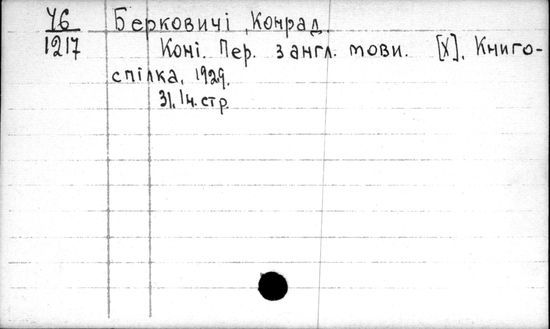 46 Берковичі, Конрад.
1217 Коні. Пер. з англ. мови. [Х], Книго-
спілка, 1929.
31, 1н. стр.